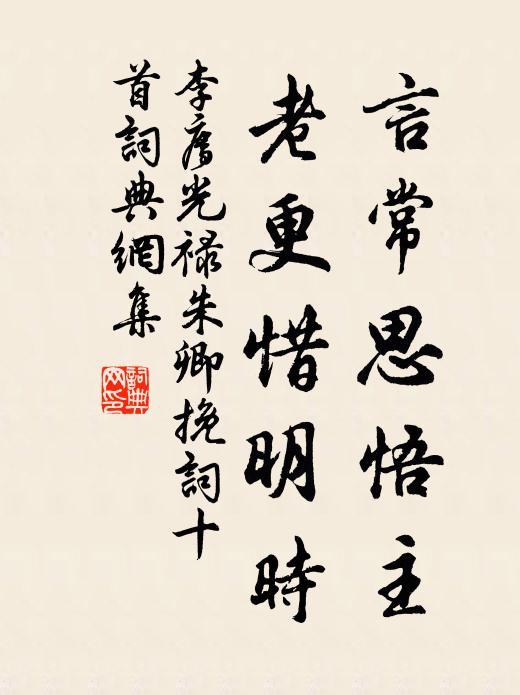 言常思悟主
老更惜明時
李廌光禄朱卿挽詞十
首詞典網集
詞典网印